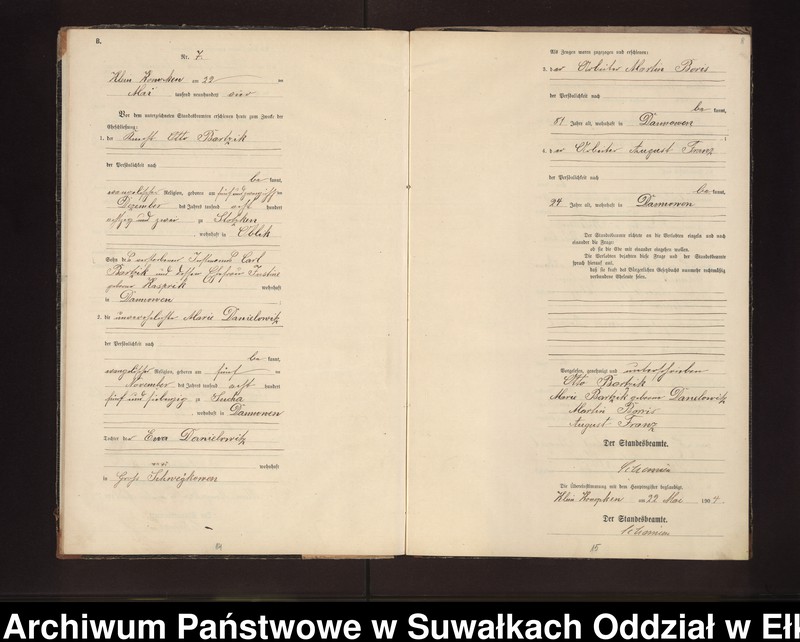 8.
Nr. 7.
Klein Konopken am 22 ten
Mai tausend neunhundert vier
Vor dem unterzeichneten Standesbeamten erschienen heute zum Zwecke der
Eheschließung:
1. der Knecht Otto Bartzik
der Persönlichkeit nach
be kannt,
evangelischer Religion, geboren am fünfundzwanzigsten
Dezember des Jahres tausend acht hundert
achtzig und zwei zu
, wohnhaft in Oblik
Sohn des verstorbenen Instmanns Carl
Bartzik und dessen Ehefrau Justine
geborne Kasprik wohnhaft
in Dannowen
2. die unverehelichte Marie Danielowitz
der Persönlichkeit nach
be kannt,
evangelischer Religion, geboren am fünf ten
November des Jahres tausend acht hundert
fünf und siebenzig zu Sucha
, wohnhaft in Dannowen
Tochter der Ewa Danielowitz
wohnhaft
in Groß Schwejkowen
84
8
Als Zeugen waren zugezogen und erschienen:
3. der Arbeiter Martin Boris
der Persönlichkeit nach
be kannt,
Jahre alt, wohnhaft in Dannowen
4. der Arbeiter August Franz
der Persönlichkeit nach
be kannt,
Jahre alt, wohnhaft in Dannowen
Der Standesbeamte richtete an die Verlobten einzeln und nach
einander die Frage:
ob sie die Ehe mit einander eingehen wollen.
Die Verlobten bejahten diese Frage und der Standesbeamte
sprach hierauf aus,
daß sie kraft des Bürgerlichen Gesetzbuchs nunmehr rechtmäßig
verbundene Eheleute seien.
Vorgelesen, genehmigt und unterschrieben
Otto Bartzik
Marie Bartzik geborene Danielowitz
Martin Borris
August Franz
Der Standesbeamte.
Die Übereinstimmung mit dem Hauptregister beglaubigt.
Klein Konopken am 22 Mai 1904
Der Standesbeamte.
85
Archiwum Państwowe w Suwałkach Oddział w Eł